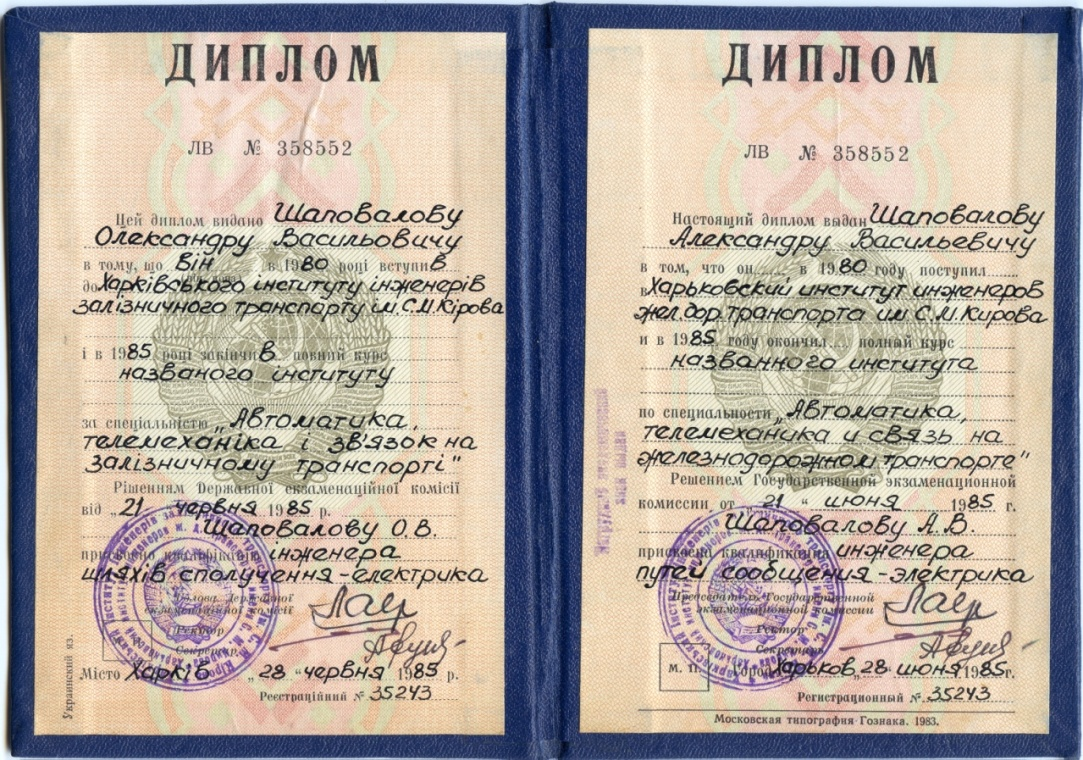 ДИПЛОМ
ЛВ № 358552
Цей диплом видано Шаповалову
Олександру Васильовичу
в тому, що він в 1980 році вступив
до Харківського інституту інженерів
залізничного транспорту ім. С.М. Кірова
і в 1985 році закінчив повний курс
названого інституту
за спеціальністю „Автоматика,
телемеханіка і зв'язок на
залізничному транспорті"
Рішенням Державної екзаменаційної комісії
від „21" червня 1985 р.
Шаповалову О.В.
присвоєно кваліфікацію інженера
шляхів сполучення-електрика
Голова Державної
екзаменаційної комісії
Ректор
Секретар
Місто Харків „28" червня 1985 р.
Реєстраційний № 35243
Украинский яз.
ДИПЛОМ
ЛВ № 358552
Настоящий диплом выдан Шаповалову
Александру Васильевичу
в том, что он в 1980 году поступил
в Харьковский институт инженеров
жел.дор.транспорта им С.М.Кирова
и в 1985 году окончил полный курс
названного института
по специальности „Автоматика,
телемеханика и связь на
железнодорожном транспорте"
Решением Государственной экзаменационной
комиссии от „21" июня 1985 г.
Шаповалову А.В.
присвоена квалификация инженера
путей сообщения-электрика
Председатель Государственной
экзаменационной комиссии
Ректор
Секретарь
М. П. Город Харьков „28" июня 1985г.
Регистрационный № 35243
Московская типография Гознака. 1983.